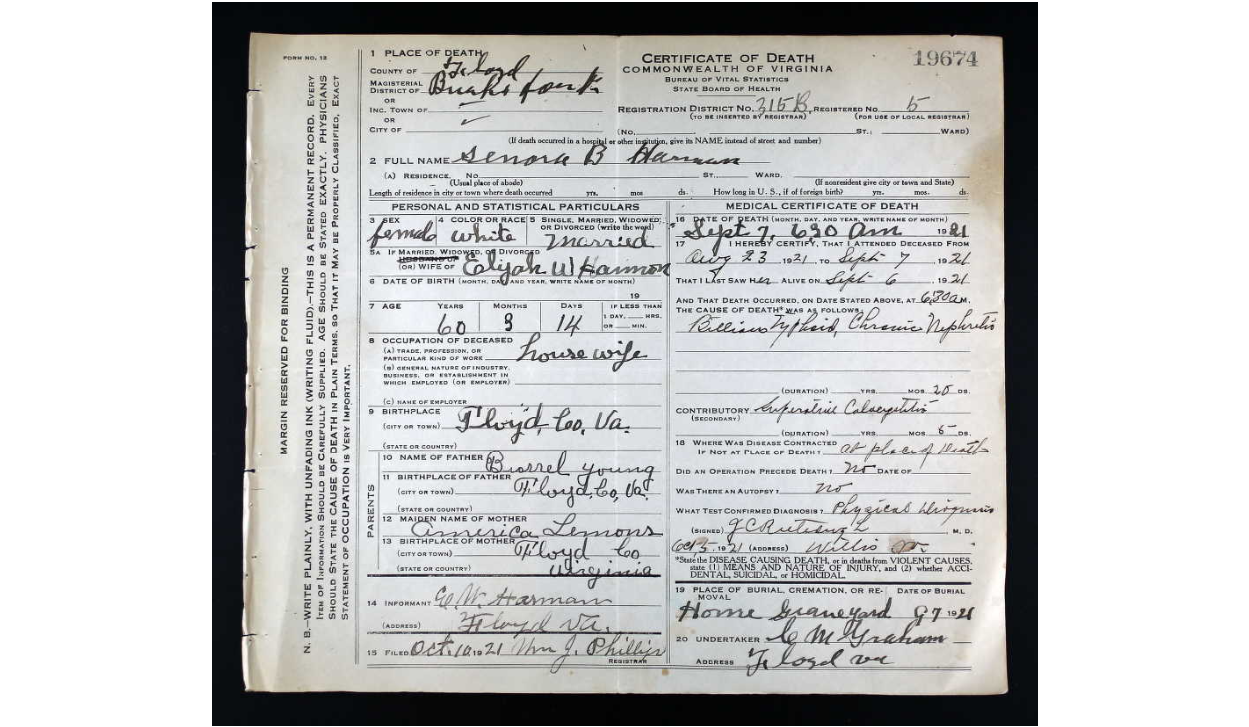 FORM NO. 12
MARGIN RESERVED FOR BINDING
N. B.—WRITE PLAINLY, WITH UNFADING INK (WRITING FLUID).—THIS IS A PERMANENT RECORD. EVERY
ITEM OF INFORMATION SHOULD BE CAREFULLY SUPPLIED. AGE SHOULD BE STATED EXACTLY. PHYSICIANS
SHOULD STATE THE CAUSE OF DEATH IN PLAIN TERMS, SO THAT IT MAY BE PROPERLY CLASSIFIED. EXACT
STATEMENT OF OCCUPATION IS VERY IMPORTANT.
1 PLACE OF DEATH
COUNTY OF Floyd
MAGISTERIAL
DISTRICT OF Burks Fork
OR
INC. TOWN OF
OR
CITY OF
CERTIFICATE OF DEATH
COMMONWEALTH OF VIRGINIA
BUREAU OF VITAL STATISTICS
STATE BOARD OF HEALTH
19674
REGISTRATION DISTRICT NO. 315B REGISTERED NO. 5
(TO BE INSERTED BY REGISTRAR) (FOR USE OF LOCAL REGISTRAR)
(NO. ST.; WARD)
(If death occurred in a hospital or other institution, give its NAME instead of street and number)
2 FULL NAME Senora B Harman
(A) RESIDENCE. No. ST. WARD.
(Usual place of abode) (If nonresident give city or town and State)
Length of residence in city or town where death occurred yrs. mos ds. How long in U. S., if of foreign birth? yrs. mos. ds.
PERSONAL AND STATISTICAL PARTICULARS
3 SEX 4 COLOR OR RACE 5 SINGLE, MARRIED, WIDOWED,
OR DIVORCED (write the word)
female white married
5A IF MARRIED, WIDOWED, OR DIVORCED
HUSBAND OF
(OR) WIFE OF Elijah W Harmon
6 DATE OF BIRTH (MONTH, DAY, AND YEAR, WRITE NAME OF MONTH)
19
7 AGE YEARS MONTHS DAYS IF LESS THAN
1 DAY, HRS.
OR MIN.
60 3 14
8 OCCUPATION OF DECEASED
(A) TRADE, PROFESSION, OR
PARTICULAR KIND OF WORK house wife
(B) GENERAL NATURE OF INDUSTRY,
BUSINESS, OR ESTABLISHMENT IN
WHICH EMPLOYED (OR EMPLOYER)
(C) NAME OF EMPLOYER
9 BIRTHPLACE
(CITY OR TOWN) Floyd, Co, Va.
(STATE OR COUNTRY)
PARENTS
10 NAME OF FATHER young
11 BIRTHPLACE OF FATHER
(CITY OR TOWN) Floyd, Co, Va.
(STATE OR COUNTRY)
12 MAIDEN NAME OF MOTHER
America Lemons
13 BIRTHPLACE OF MOTHER
(CITY OR TOWN) Floyd Co
(STATE OR COUNTRY) Virginia
14 INFORMANT Harman
(ADDRESS) Floyd Va.
15 FILED Oct. 10, 1921 Wm J. Phillips
REGISTRAR
MEDICAL CERTIFICATE OF DEATH
16 DATE OF DEATH (MONTH, DAY, AND YEAR, WRITE NAME OF MONTH)
Sept 7, 630 am 1921
17 I HEREBY CERTIFY, THAT I ATTENDED DECEASED FROM
Aug 23 1921, TO Sept 7, 1921
THAT I LAST SAW Her ALIVE ON Sept 6, 1921
AND THAT DEATH OCCURRED, ON DATE STATED ABOVE, AT 630a M.
THE CAUSE OF DEATH* WAS AS FOLLOWS:
Typhoid, Chronic Nephritis
(DURATION) YRS. MOS. 20 DS.
CONTRIBUTORY
(SECONDARY)
(DURATION) YRS. MOS. 5 DS.
18 WHERE WAS DISEASE CONTRACTED
IF NOT AT PLACE OF DEATH? at place of Death
DID AN OPERATION PRECEDE DEATH? no DATE OF
WAS THERE AN AUTOPSY? no
WHAT TEST CONFIRMED DIAGNOSIS? Physical Diognosis
(SIGNED) M. D.
Oct 5, 1921 (ADDRESS) Willis
*State the DISEASE CAUSING DEATH, or in deaths from VIOLENT CAUSES,
state (1) MEANS AND NATURE OF INJURY, and (2) whether ACCI-
DENTAL, SUICIDAL, or HOMICIDAL.
19 PLACE OF BURIAL, CREMATION, OR RE-
MOVAL DATE OF BURIAL
Home Graveyard 9 7 1921
20 UNDERTAKER C M Graham
ADDRESS Floyd va